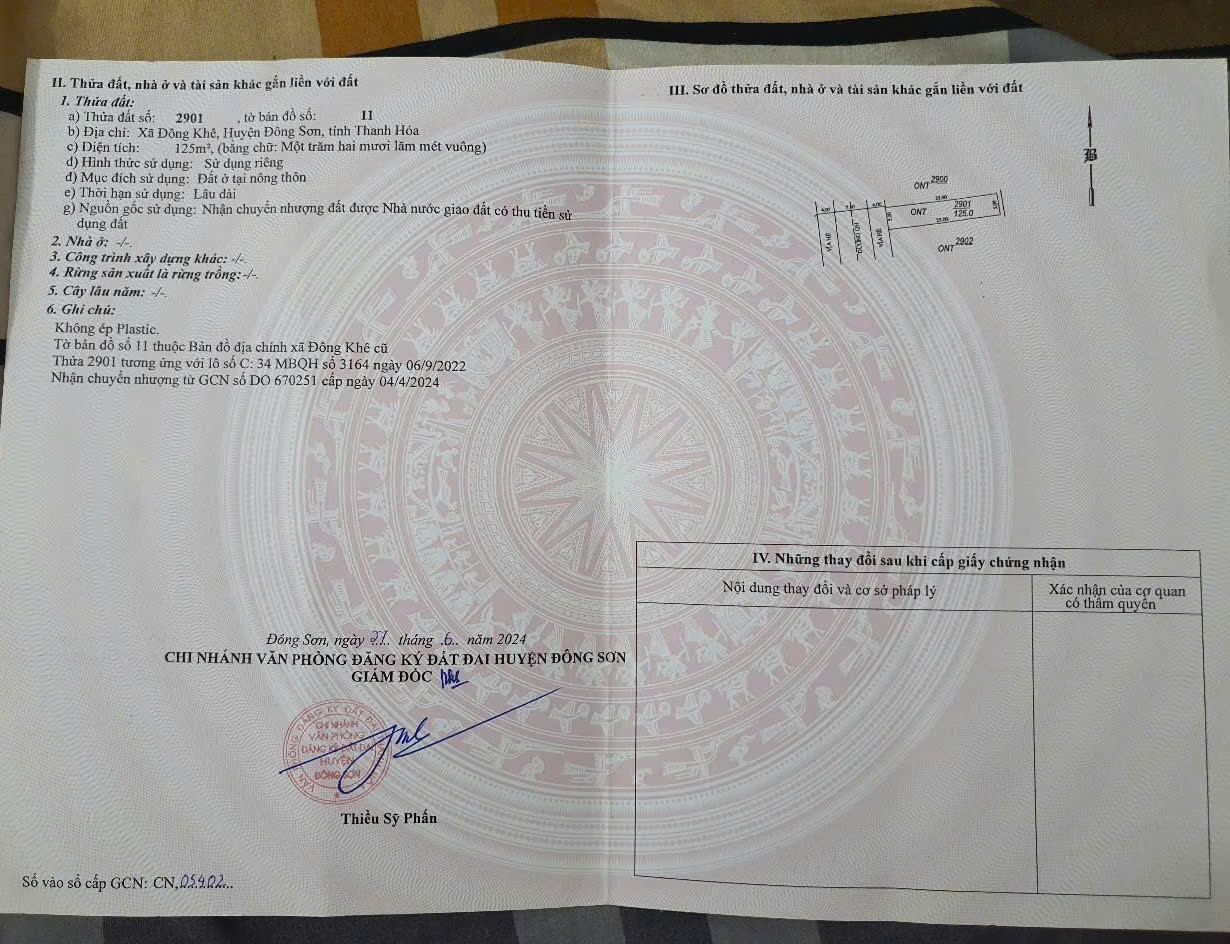 II. Thửa đất, nhà ở và tài sản khác gắn liền với đất
1. Thửa đất:
a) Thửa đất số: 2901 , tờ bản đồ số: 11
b) Địa chỉ: Xã Đông Khê, Huyện Đông Sơn, tỉnh Thanh Hóa
c) Diện tích: 125m², (bằng chữ: Một trăm hai mươi lăm mét vuông)
d) Hình thức sử dụng: Sử dụng riêng
đ) Mục đích sử dụng: Đất ở tại nông thôn
e) Thời hạn sử dụng: Lâu dài
g) Nguồn gốc sử dụng: Nhận chuyển nhượng đất được Nhà nước giao đất có thu tiền sử
dụng đất
2. Nhà ở: -/-.
3. Công trình xây dựng khác: -/-.
4. Rừng sản xuất là rừng trồng: -/-.
5. Cây lâu năm: -/-.
6. Ghi chú:
Không ép Plastic.
Tờ bản đồ số 11 thuộc Bản đồ địa chính xã Đông Khê cũ
Thửa 2901 tương ứng với lô số C: 34 MBQH số 3164 ngày 06/9/2022
Nhận chuyển nhượng từ GCN số DO 670251 cấp ngày 04/4/2024
Đông Sơn, ngày 27.. tháng .6.. năm 2024
CHI NHÁNH VĂN PHÒNG ĐĂNG KÝ ĐẤT ĐAI HUYỆN ĐÔNG SƠN
GIÁM ĐỐC
CHI NHÁNH
VĂN PHÒNG
ĐĂNG KÝ ĐẤT ĐAI
HUYỆN
ĐÔNG SƠN
Thiều Sỹ Phấn
Số vào sổ cấp GCN: CN,05402...
III. Sơ đồ thửa đất, nhà ở và tài sản khác gắn liền với đất
B
ONT 2900
4.00 4.00 25.00
ONT 2901
125.0
25.00
VỈA HÈ VỈA HÈ
ONT 2902
IV. Những thay đổi sau khi cấp giấy chứng nhận
Nội dung thay đổi và cơ sở pháp lý
Xác nhận của cơ quan
có thẩm quyền